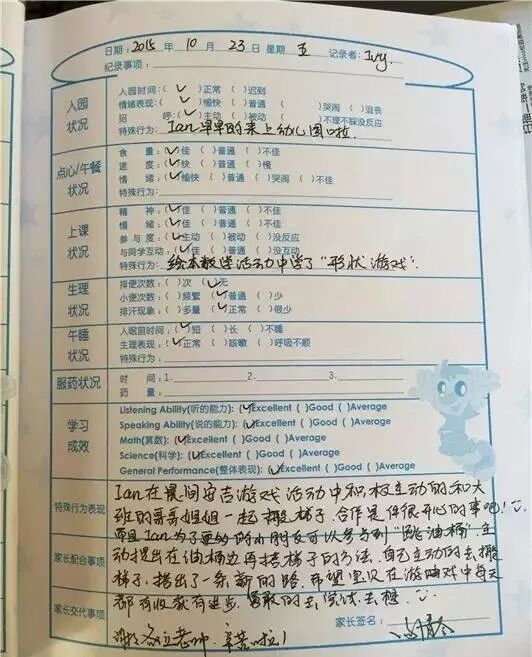 日期: 2015 年 10 月 23 日 星期 五 记录者: Ivy.
纪录事项:
入园状况
入园时间: (✓)正常 ( )迟到
情绪表现: (✓)愉快 ( )普通 ( )哭闹 ( )沮丧
招 呼: (✓)主动 ( )被动 ( )不理不睬没反应
特殊行为: Ian早早的来上幼儿园啦.
点心/午餐状况
食 量: (✓)佳 ( )普通 ( )不佳
速 度: (✓)快 ( )普通 ( )慢
情 绪: (✓)愉快 ( )普通 ( )哭闹 ( )不佳
特殊行为:
上课状况
精 神: (✓)佳 ( )普通 ( )不佳
情 绪: (✓)佳 ( )普通 ( )不佳
参 与 度: (✓)主动 ( )被动 ( )没反应
与同学互动: (✓)佳 ( )普通 ( )没互动
特殊行为: 绘本数学活动中学了“形状游戏”.
生理状况
排便次数: ( )次 (✓)无
小便次数: ( )频繁 (✓)普通 ( )少
排汗现象: ( )多量 (✓)正常 ( )很少
午睡状况
入眠前时间: (✓)短 ( )长 ( )不睡
生理表现: (✓)正常 ( )咳嗽 ( )呼吸不顺
特殊行为:
服药状况
时 间: 1. 2. 3.
药 量:
学习成效
Listening Ability(听的能力): (✓)Excellent ( )Good ( )Average
Speaking Ability(说的能力): (✓)Excellent ( )Good ( )Average
Math(算数): (✓)Excellent ( )Good ( )Average
Science(科学): (✓)Excellent ( )Good ( )Average
General Performance(整体表现): (✓)Excellent ( )Good ( )Average
特殊行为表现
Ian在晨间安吉游戏活动中积极主动的和大
班的哥哥姐姐一起搬梯子,合作是件很开心的事吧!
而且Ian为了更多的小朋友可以参与到“跳油桶”主
家长配合事项
动提出在油桶边再搭梯子的方法,自己主动的去搬
梯子,搭出了一条新的路.希望宝贝在游戏中每天
家长交代事项
都有收获有进步,勇敢的去尝试去
谢谢 老师,辛苦啦!
家长签名: